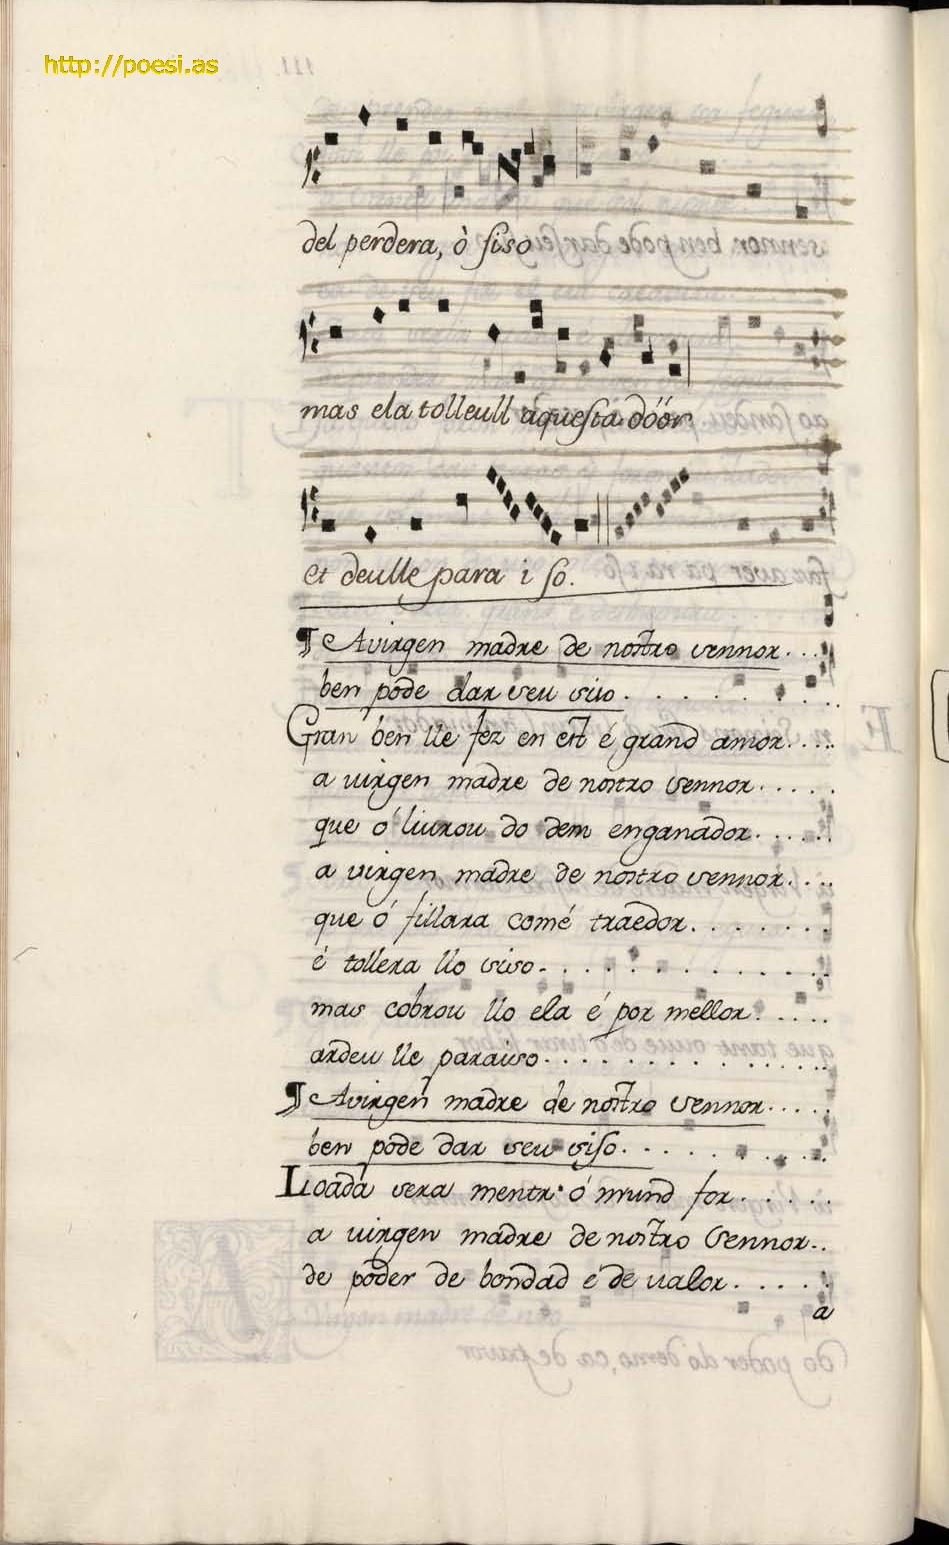 http://poesi.as
del perdera, ò siso
mas ela tolleull aquesta dóór
et deulle para i so.
¶ A virgen madre de nostro vennor....
ben pode dar seu siso.......
Gran ben lle fez en est é grand amor....
a virgen madre de nostro vennor.....
que o livrou do dem enganador......
a virgen madre de nostro vennor....
que ó fillara comé traedor.......
é tollera llo siso.............
mas cobrou llo ela é por mellor.....
ardeu lle paraiso.............
¶ A virgen madre de nostro vennor.....
ben pode dar seu siso.........
Loada sera mentr' ó mund for......
a virgen madre de nostro Vennor..
de poder de bondad é de valor......
a